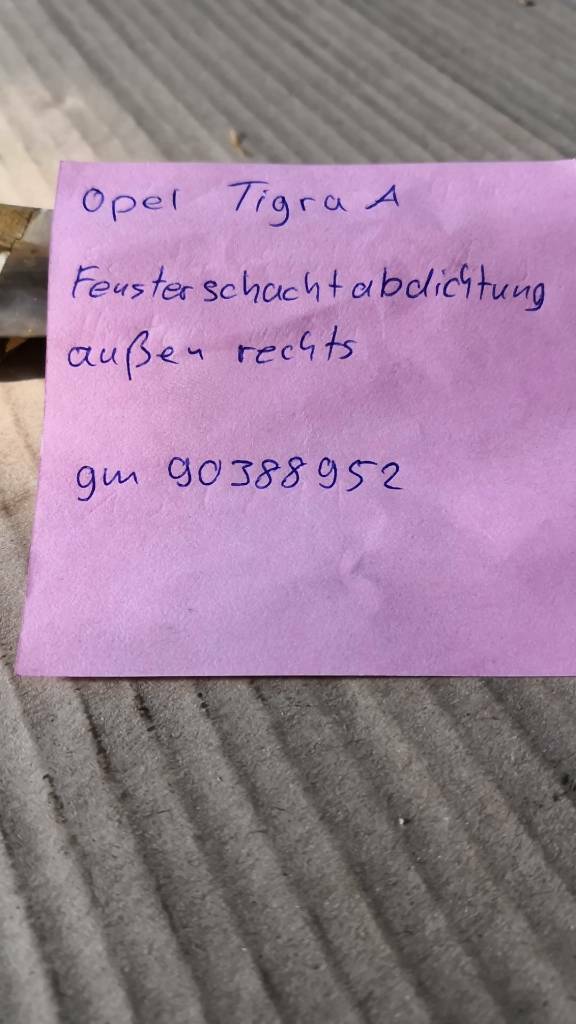 Opel Tigra A
Fensterschachtabdichtung
außen rechts
gm 90388952